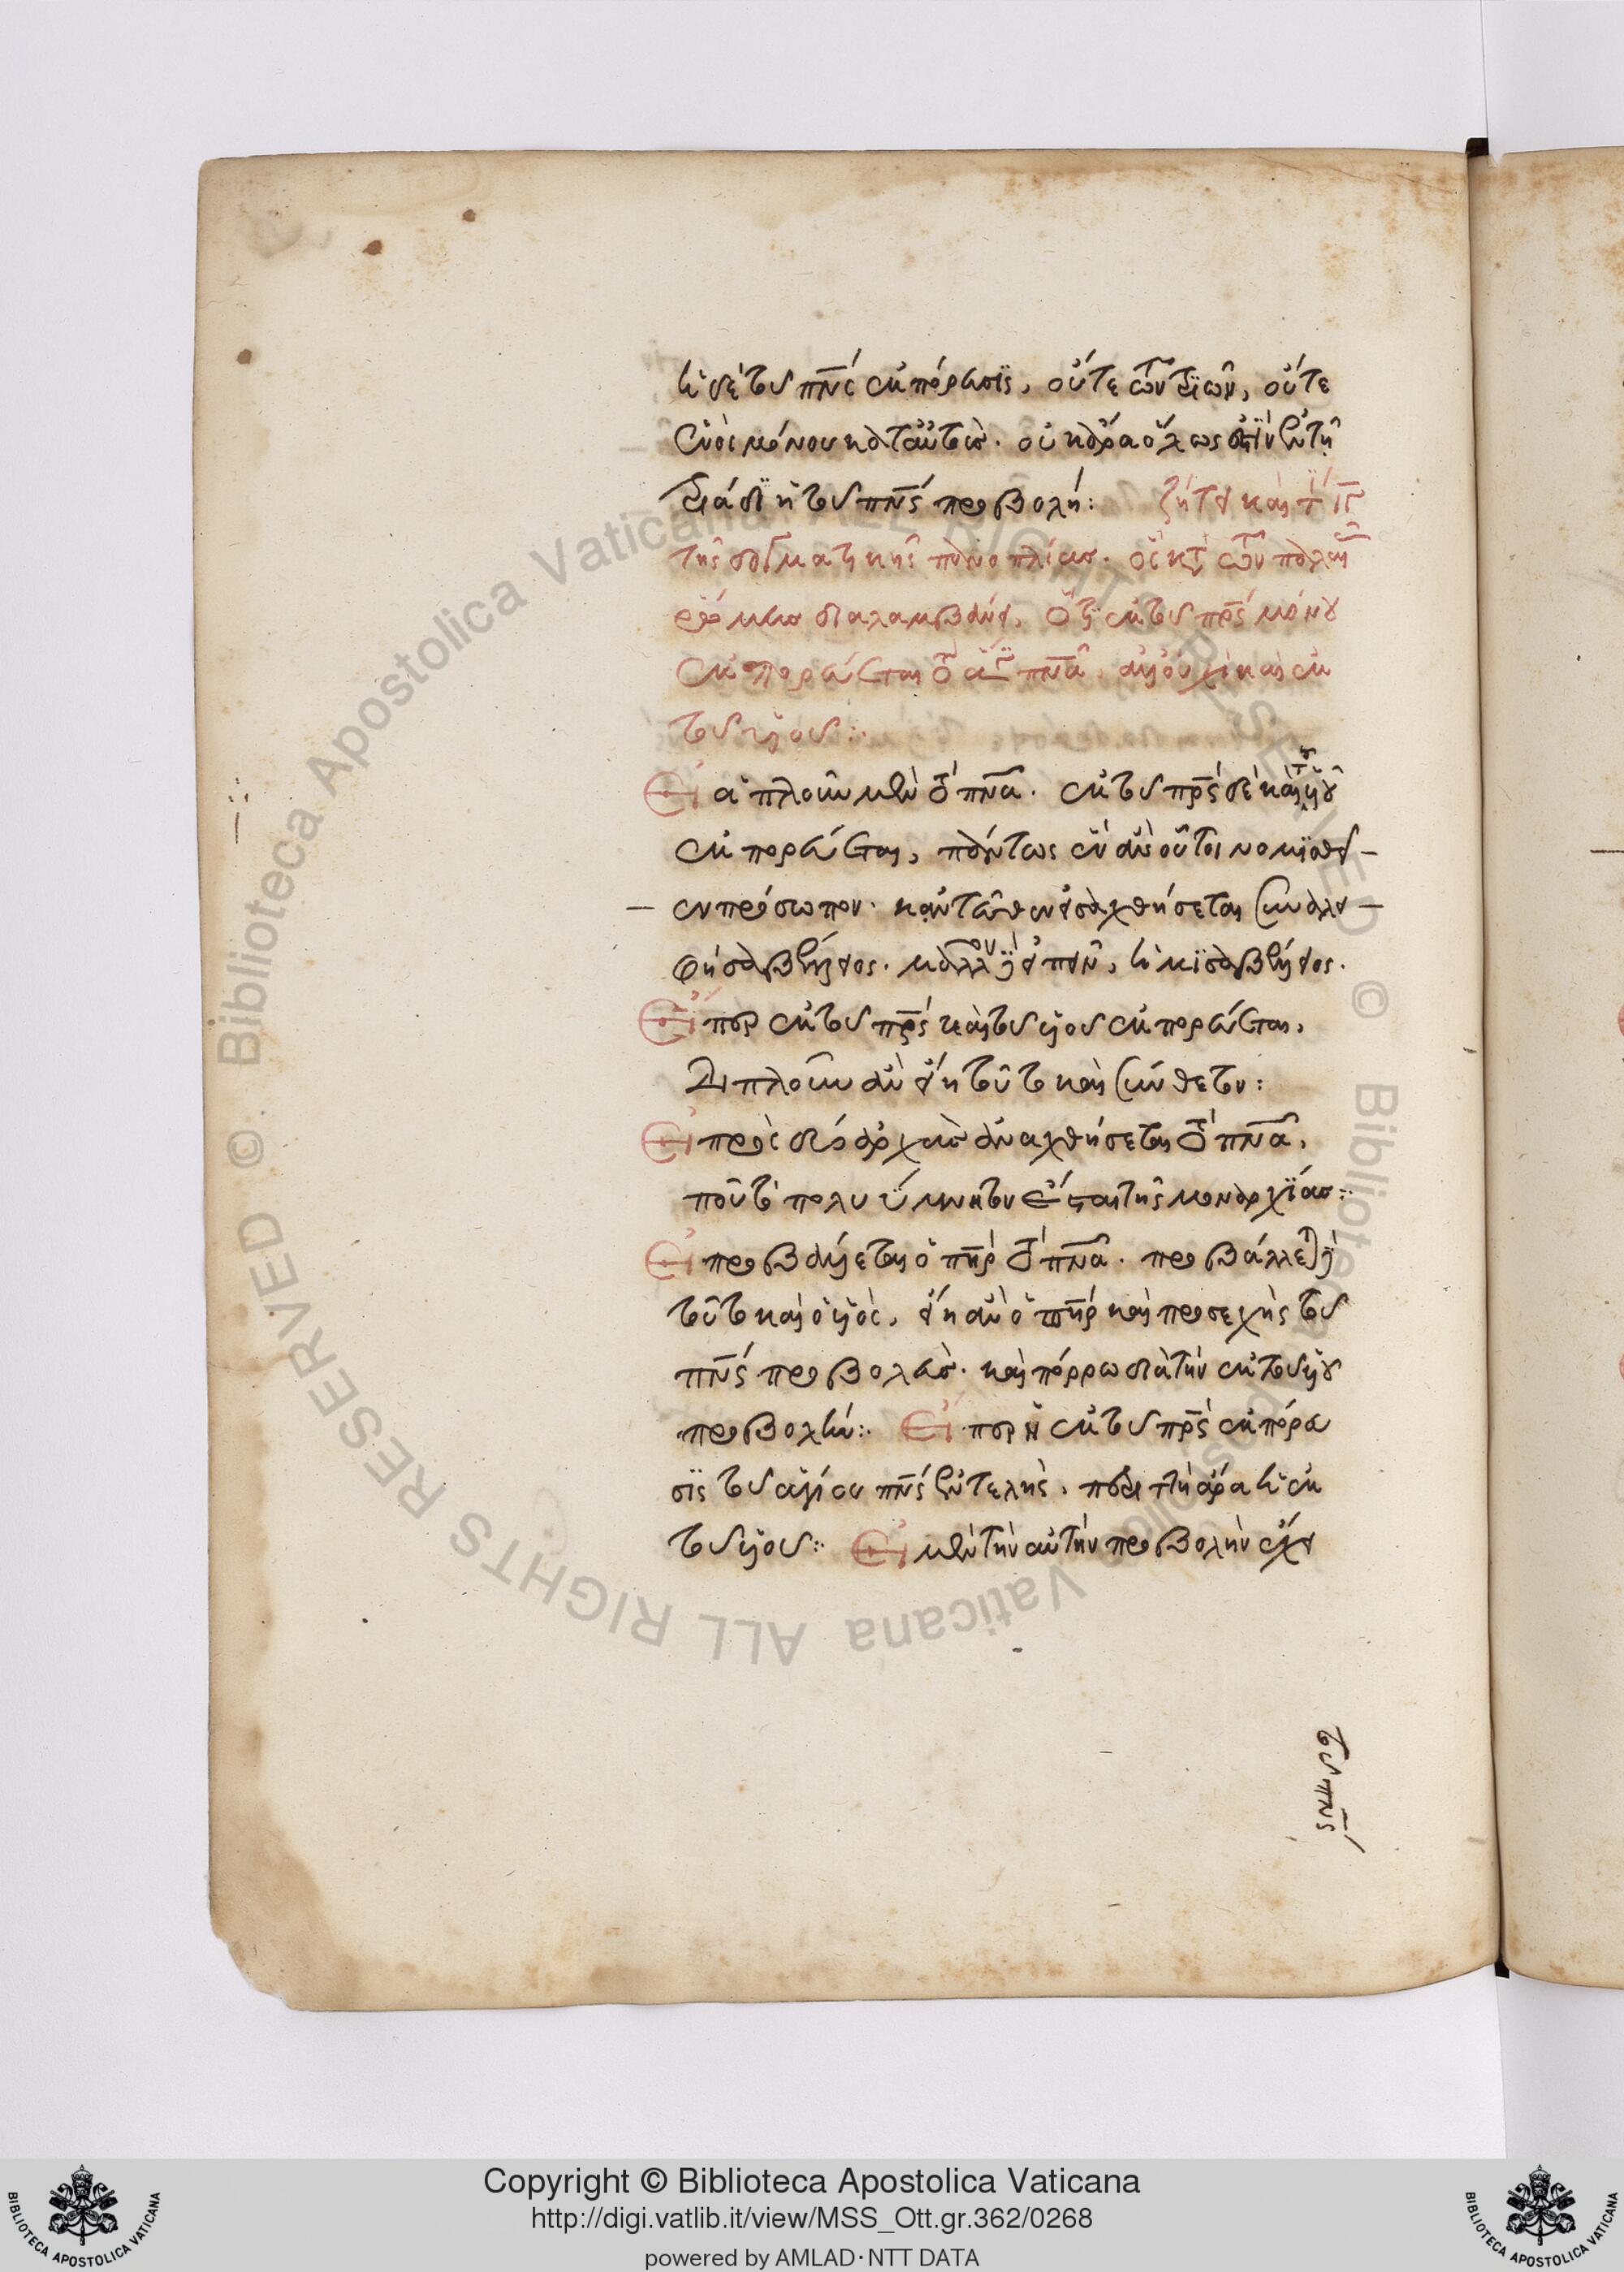 ἡ δὲ τοῦ πνς ἐκπόρευσις, οὔτε τῶν τριῶν, οὔτε
ἑνὸς μόνου κατ' αὐτούς. οὐκ ἄρα ὅλως ἐστὶν ἐν τῇ
τριάδι ἡ τοῦ πνς προβολή: ζήτει καὶ
τῆς δογματικῆς πανοπλίας. οἱ κατὰ τῶν παλαιῶν
διαλαμβάνει, ὅτι ἐκ τοῦ πρς μόνου
ἐκπορεύεται τὸ ἅγιον πνα. ἀλλ' οὐχὶ καὶ ἐκ
τοῦ υἱοῦ:
Εἰ ἁπλοῦν μὲν τὸ πνα. ἐκ τοῦ πρς δὲ καὶ τοῦ υἱοῦ
ἐκπορεύεται, πάντως ἓν ἂν οὗτοι νομισθεῖ-
εν πρόσωπον. κἀντεῦθεν εἰσαχθήσεται συναλοι-
φὴ σαβέλλειος. μᾶλλον δὲ εἰπεῖν, ἡμισαβέλλειος.
Εἴπερ ἐκ τοῦ πρς καὶ τοῦ υἱοῦ ἐκπορεύεται,
Διπλοῦν ἂν εἴη τοῦτο καὶ σύνθετον:
Εἰ πρὸς δύο ἀρχὰς ἀναχθήσεται τὸ πνα,
ποῦ τὸ πολυύμνητον ἔσται τῆς μοναρχίας:
Εἰ προβαλεῖται ὁ πηρ τὸ πνα. προβάλλεται δὲ
τοῦτο καὶ ὁ υἱός, εἴη ἂν ὁ πηρ καὶ προσεχὴς τοῦ
πνς προβολεύς. καὶ πόρρω διὰ τὴν ἐκ τοῦ υἱοῦ
προβολήν: Εἴπερ ἡ ἐκ τοῦ πρς ἐκπόρευ
σις τοῦ ἁγίου πνς ἐντελής, περιττὴ ἄρα ἡ ἐκ
τοῦ υἱοῦ: Εἰ μὲν τὴν αὐτὴν προβολὴν ἔχει
τοῦ πνς
Copyright © Biblioteca Apostolica Vaticana
http://digi.vatlib.it/view/MSS_Ott.gr.362/0268
powered by AMLAD·NTT DATA
BIBLIOTECA APOSTOLICA VATICANA
BIBLIOTECA APOSTOLICA VATICANA
© Biblioteca Apostolica Vaticana ALL RIGHTS RESERVED © Biblioteca Apostolica Vaticana ALL RIGHTS RESERVED